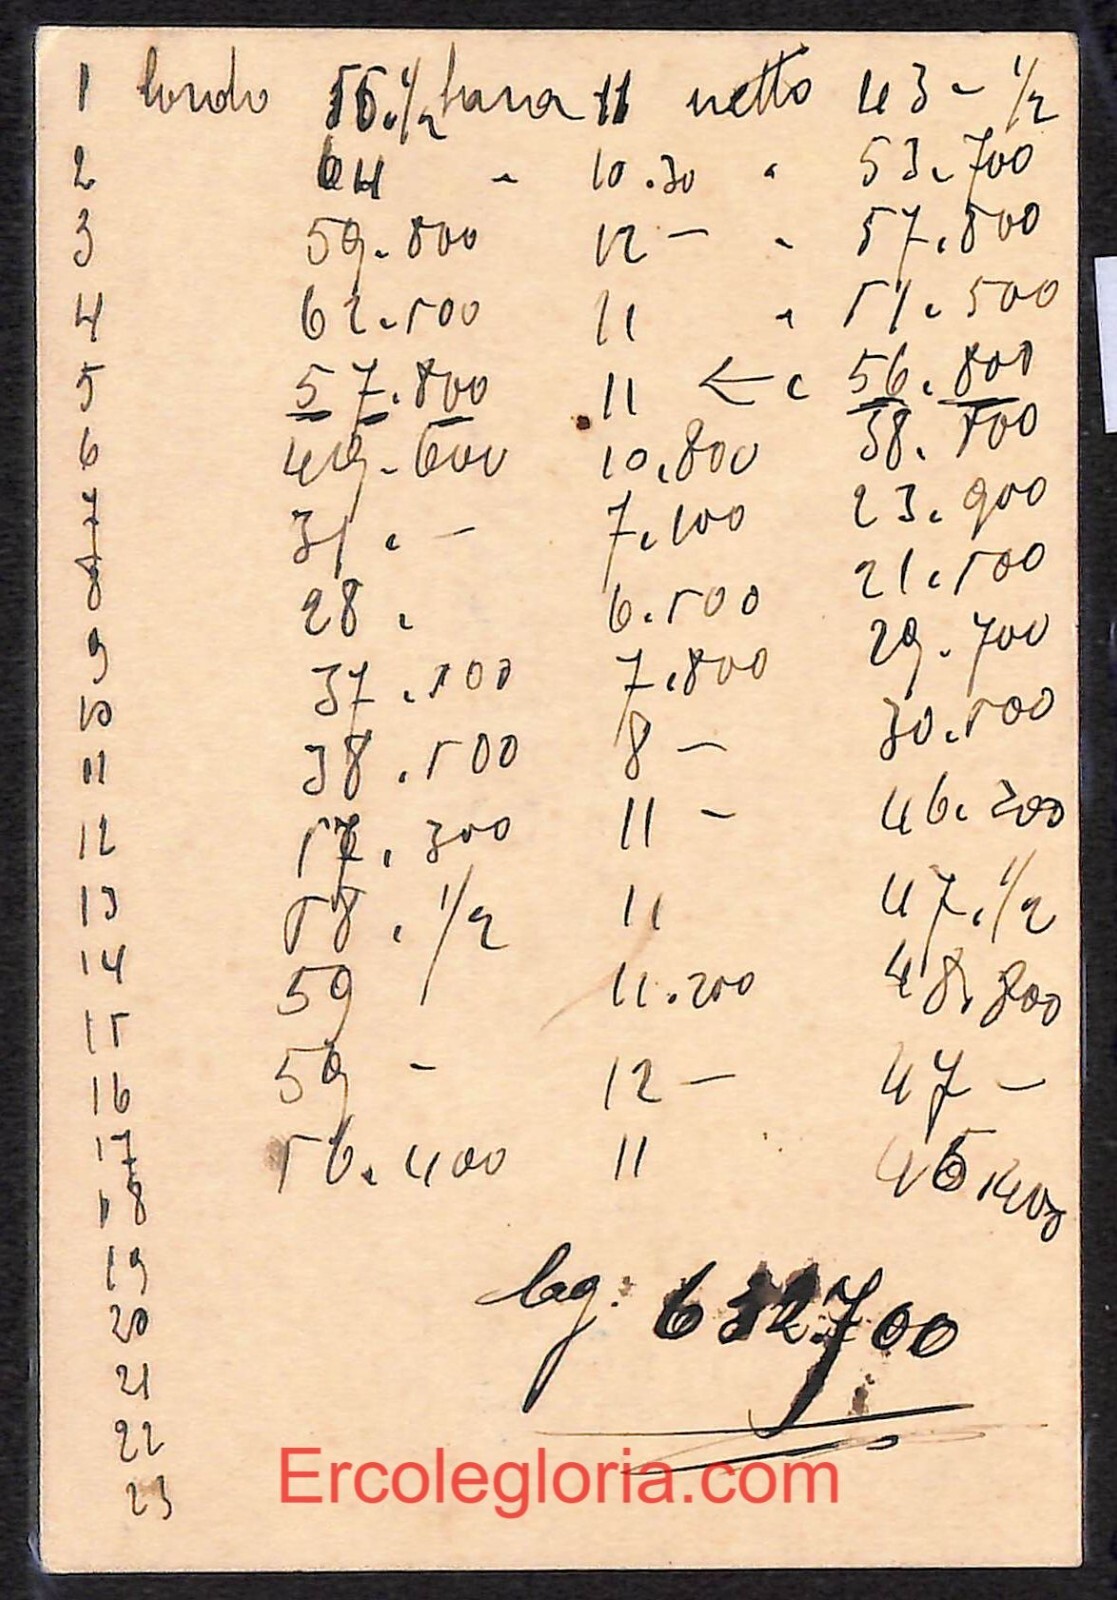 1 lordo 56.½ tara 11 netto 43 - ½
2 64 - 10.30 " 53.700
3 59.800 12 - " 57.800
4 62.500 11 " 51.500
5 57.800 11 ← " 56.800
6 49.600 10.800 38.800
7 31. - 7.100 23.900
8 28. 6.500 21.500
9 37.500 7.800 29.700
10 38.500 8 - 30.500
11 57.300 11 - 46.300
12 58.½ 11 47.½
13 59 11.200 48.800
14 59 - 12 - 47 -
15 56.400 11 45.400
16
17
18
19
20
21
22
23
kg: 700
Ercolegloria.com